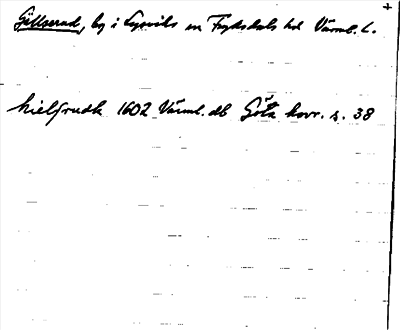 Gällserud, by i Lysviks sn Fryksdals hd Värml. l.
kielsrudh 1602 Värml. db Götz korr. s. 38